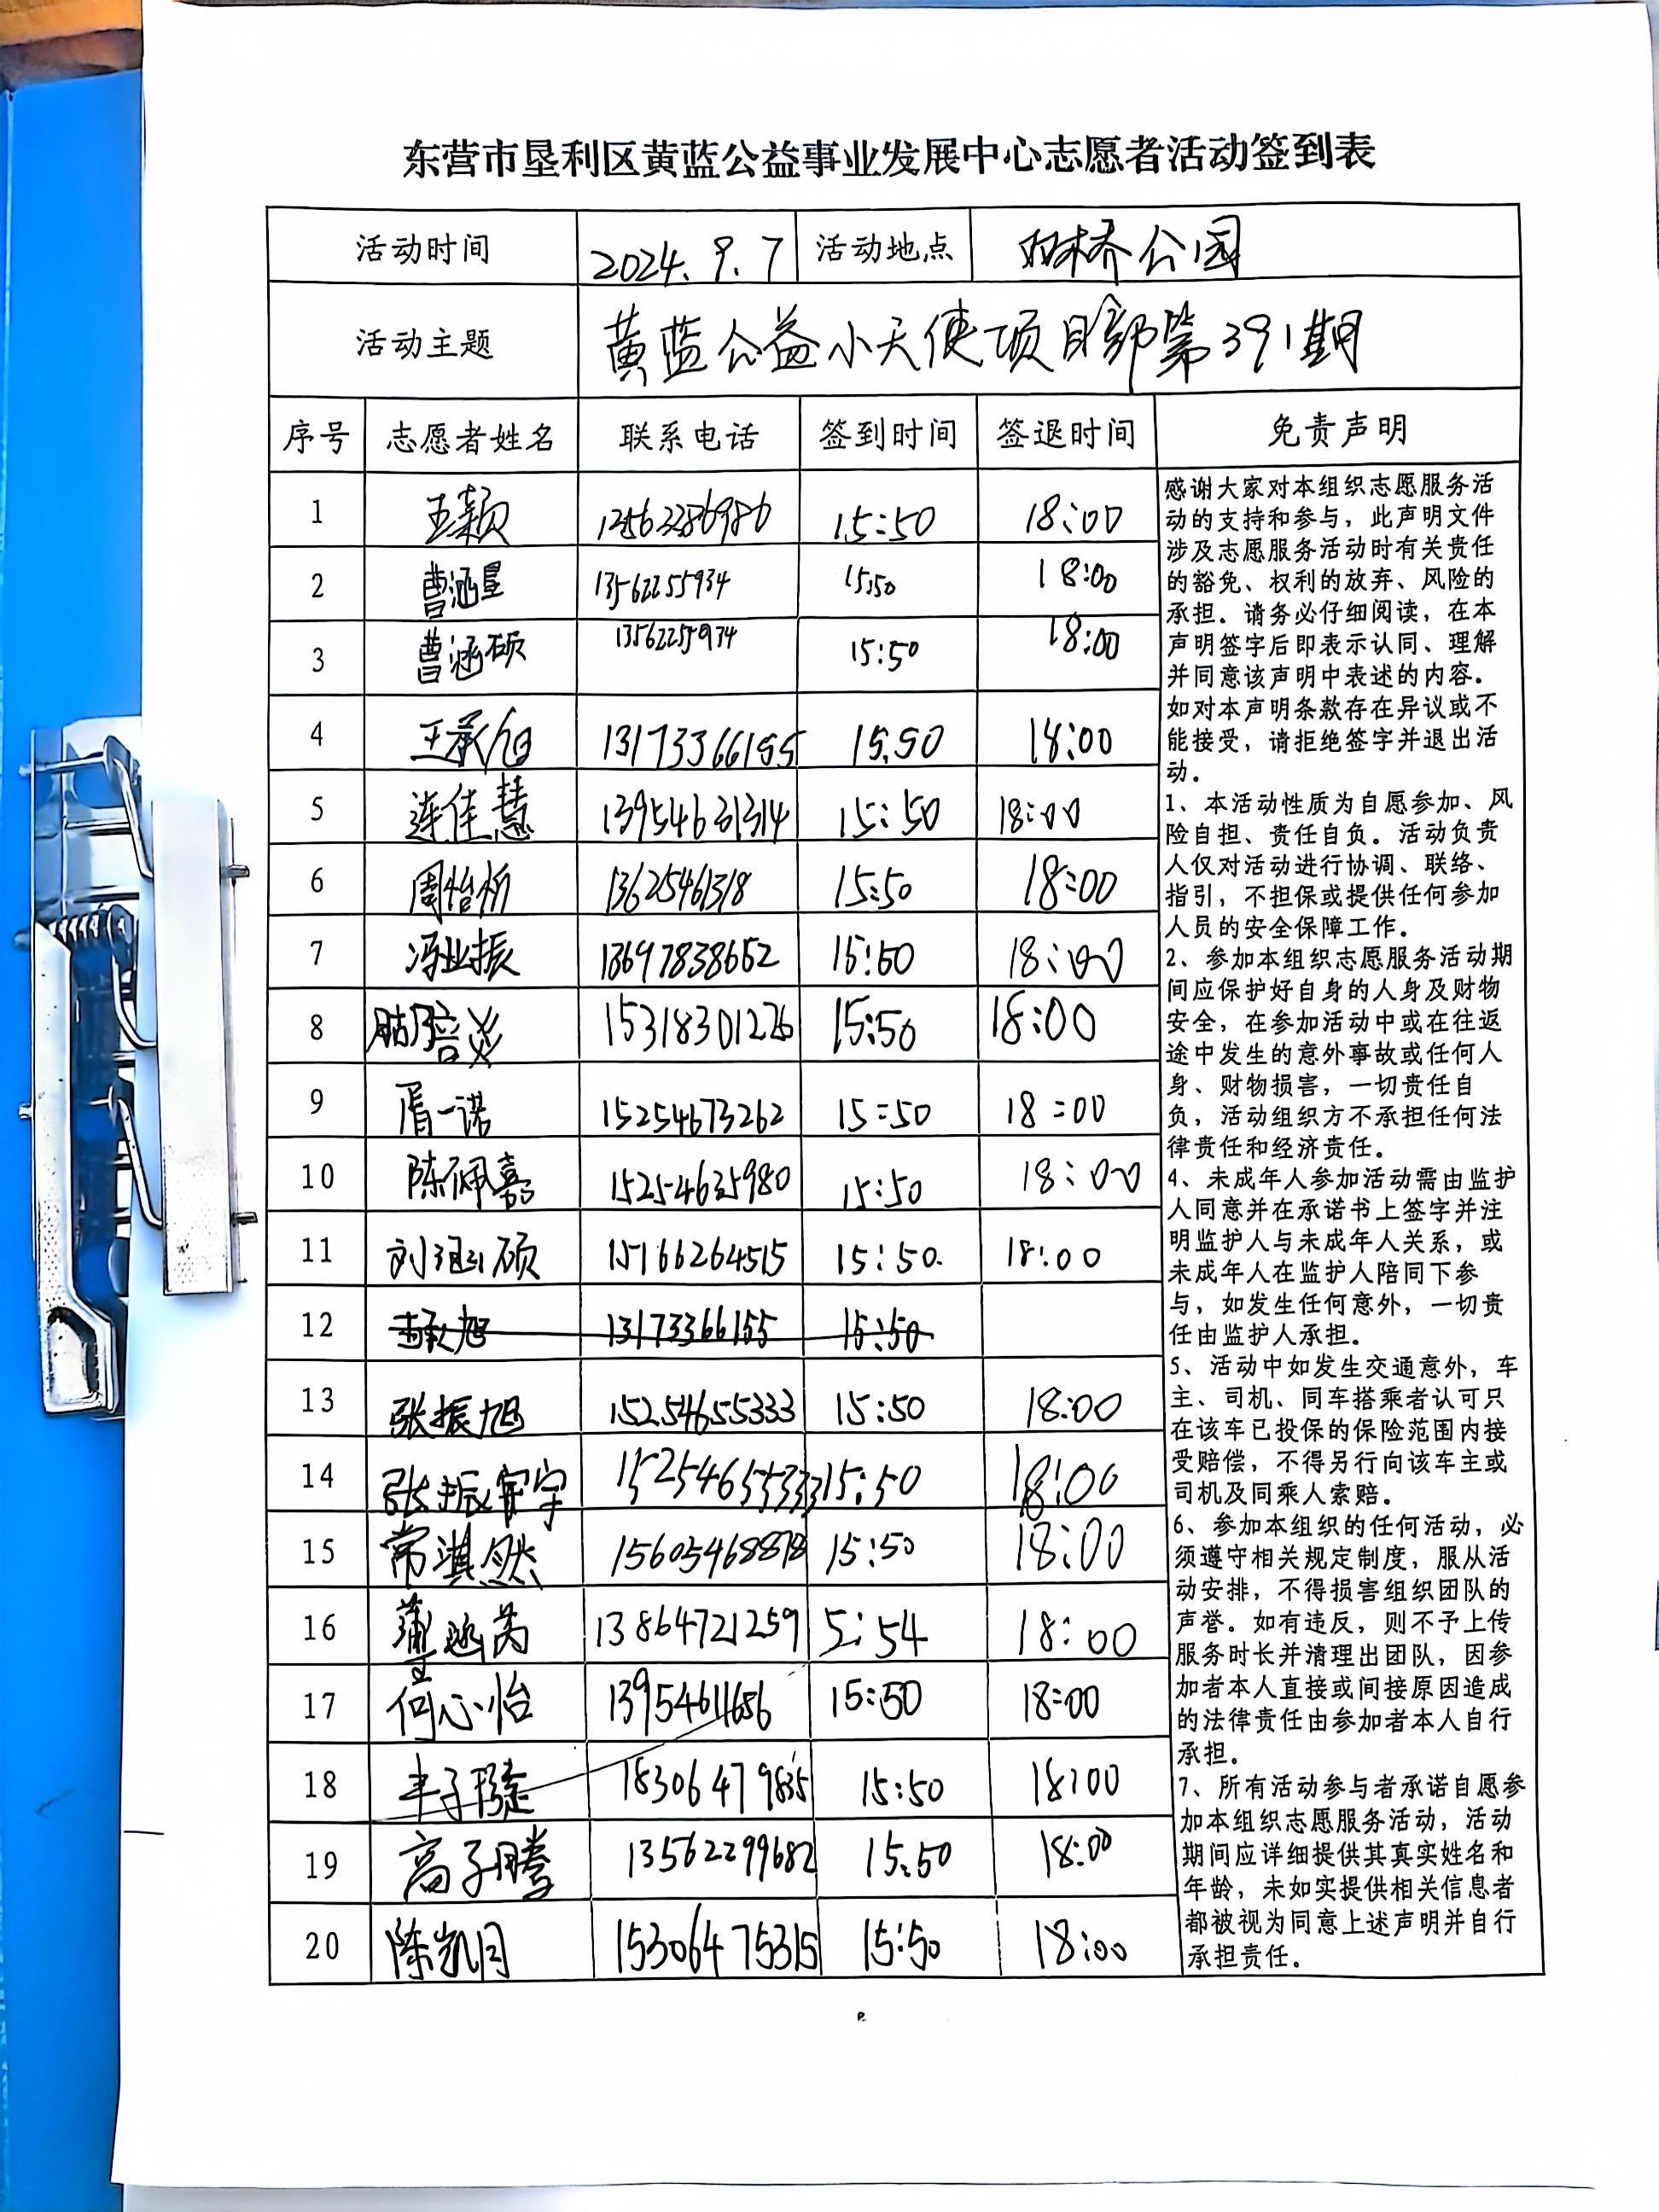 东营市垦利区黄蓝公益事业发展中心志愿者活动签到表
活动时间 2024.9.7 活动地点 双桥公园
活动主题 黄蓝公益小天使项目部第391期
序号 志愿者姓名 联系电话 签到时间 签退时间 免责声明
1 王颖 15:50 18:00
2 曹涵星 13562255934 15:50 18:00
3 曹涵硕 13562255934 15:50 18:00
4 王承旭 13173366155 15:50 18:00
5 连佳慧 13954631314 15:50 18:00
6 周怡忻 13625461318 15:50 18:00
7 冯业振 15:50 18:00
8 15318301226 15:50 18:00
9 胥一诺 15254673262 15:50 18:00
10 陈佩嘉 15254635980 15:50 18:00
11 刘涵硕 15166264515 15:50. 18:00
12 13173366155 15:50
13 张振旭 15254655333 15:50 18:00
14 张振宇 15254655333 15:50 18:00
15 常淇然 15605468878 15:50 18:00
16 13864721259 5:54 18:00
17 何心怡 13954611686 15:50 18:00
18 15:50 18:00
19 高子腾 13562299682 15:50 18:00
20 陈凯月 15306475315 15:50 18:00
感谢大家对本组织志愿服务活
动的支持和参与，此声明文件
涉及志愿服务活动时有关责任
的豁免、权利的放弃、风险的
承担。请务必仔细阅读，在本
声明签字后即表示认同、理解
并同意该声明中表述的内容。
如对本声明条款存在异议或不
能接受，请拒绝签字并退出活
动。
1、本活动性质为自愿参加、风
险自担、责任自负。活动负责
人仅对活动进行协调、联络、
指引，不担保或提供任何参加
人员的安全保障工作。
2、参加本组织志愿服务活动期
间应保护好自身的人身及财物
安全，在参加活动中或在往返
途中发生的意外事故或任何人
身、财物损害，一切责任自
负，活动组织方不承担任何法
律责任和经济责任。
4、未成年人参加活动需由监护
人同意并在承诺书上签字并注
明监护人与未成年人关系，或
未成年人在监护人陪同下参
与，如发生任何意外，一切责
任由监护人承担。
5、活动中如发生交通意外，车
主、司机、同车搭乘者认可只
在该车已投保的保险范围内接
受赔偿，不得另行向该车主或
司机及同乘人索赔。
6、参加本组织的任何活动，必
须遵守相关规定制度，服从活
动安排，不得损害组织团队的
声誉。如有违反，则不予上传
服务时长并清理出团队，因参
加者本人直接或间接原因造成
的法律责任由参加者本人自行
承担。
7、所有活动参与者承诺自愿参
加本组织志愿服务活动，活动
期间应详细提供其真实姓名和
年龄，未如实提供相关信息者
都被视为同意上述声明并自行
承担责任。